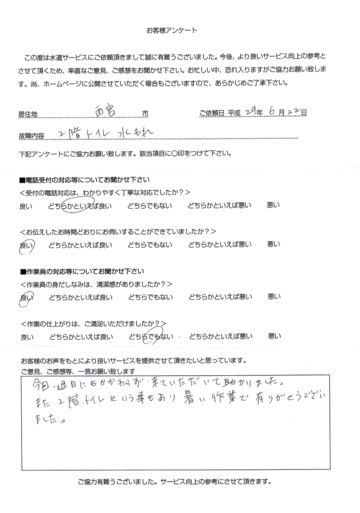 お客様アンケート
この度は水道サービスにご依頼頂きまして誠に有難うございました。今後、より良いサービス向上の参考と
させて頂くため、率直なご意見、ご感想をお聞かせ下さい。お忙しい中、恐れ入りますがご協力お願い致しま
す。尚、ホームページに公開させていただく場合もございますので、あらかじめご了承下さい。
居住地 西宮 市 ご依頼日 平成 29年 6月 22日
故障内容 2階トイレ 水もれ
下記アンケートにご協力お願い致します。該当項目に○印をつけて下さい。
■電話受付の対応等についてお聞かせ下さい
<受付の電話対応は、わかりやすく丁寧な対応でしたか?>
良い どちらかといえば良い どちらでもない どちらかといえば悪い 悪い
<お伝えしたお時間どおりにお伺いすることができていましたか?>
良い どちらかといえば良い どちらでもない どちらかといえば悪い 悪い
■作業員の対応等についてお聞かせ下さい
<作業員の身だしなみは、清潔感がありましたか?>
良い どちらかといえば良い どちらでもない どちらかといえば悪い 悪い
<作業の仕上がりは、ご満足いただけましたか?>
良い どちらかといえば良い どちらでもない どちらかといえば悪い 悪い
お客様のお声をもとにより良いサービスを提供させて頂きたいと思っています。
ご意見、ご感想等、一言お願い致します
今回、週日にもかかわらず、来ていただいて助かりました。
また2階、トイレという事もあり暑い作業で有りがとうござい
ました。
ご協力有難うございました。サービス向上の参考にさせて頂きます。